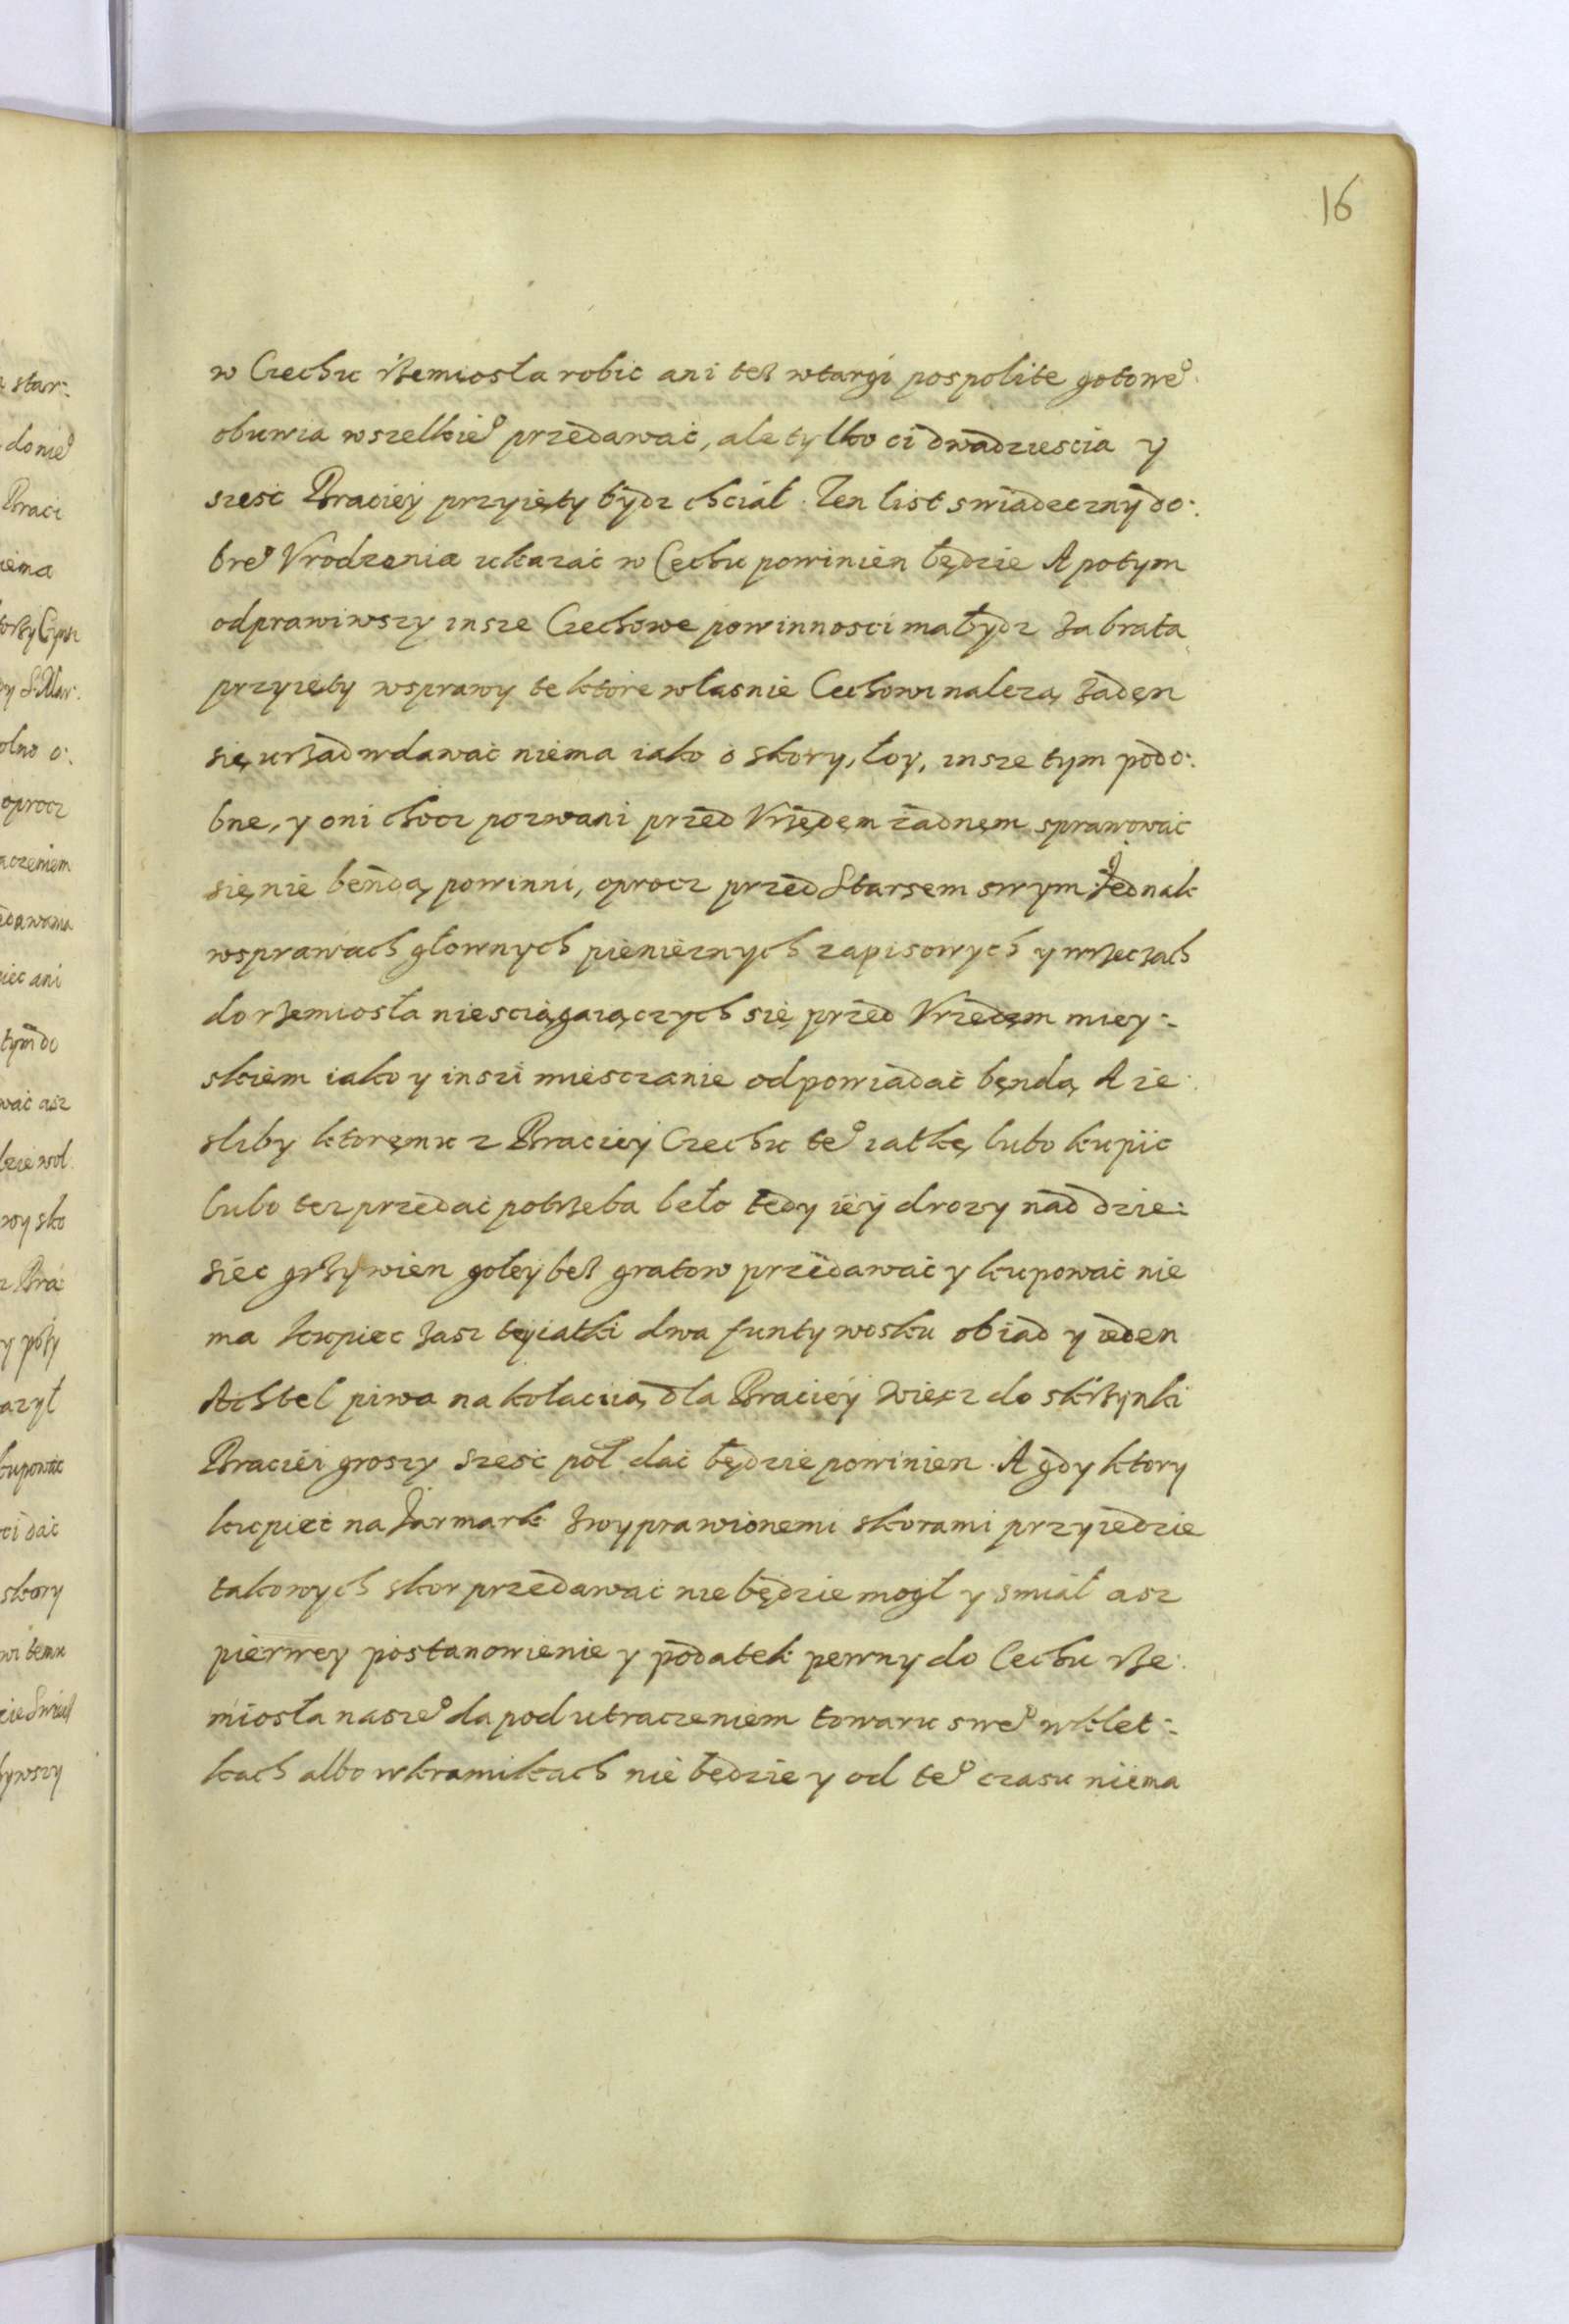 16
w Czechu rzemiosła robic ani tesz wtargi pospolite gotoweº
obuwia wszelkieº przedawać, ale tylko ci dwadziescia y
szesc Braciey przyięty bydz chciał. Ten list swiadeczny do:
breº Vrodzenia ukazać w Cechu powinien będzie A potym
odprawiwszy insze Czechowe powinnosci ma bydz za brata
przyięty wsprawy te ktore własnie Cechowi należą żaden
się urząd wdawać niema iako o skory, łoy, insze tym podo:
bne, y oni chocz pozwani przed Vrzędem żadnem sprawować
się nie bendą powinni, oprocz przed Starsem swym Jednak
wsprawach głownych pienieznych zapisowych y wrzeczach
do rzemiosła niesciągaiączych się przed Vrzedem miey:
skiem iako y inszi miesczanie odpowiadać będą A ie:
sliby ktoremu z Braciey Czechu teº iatkę lubo kupic
lubo tez przedać potrzeba beło tedy iey drozy nad dzie:
siec grzywien gołey bez gratow przedawać y kupować nie
ma kupiec zasz tey iatki dwa funty wosku obiad y ieden
Achtel piwa na kolaciią dla Braciey Wiecz do skrzynki
Braciei groszy szesc poł dać będzie powinien. A gdy ktory
kupiec na Jarmark zwyprawionemi skorami przyiedzie
takowych skor przedawać nie będzie mogł y smiał asz
pierwey postanowienie y podatek pewny do Cechu rze:
miosła naszeº da pod utraczeniem towaru sweº wklet:
kach albo wkramikach nie będzie y od teº czasu niema